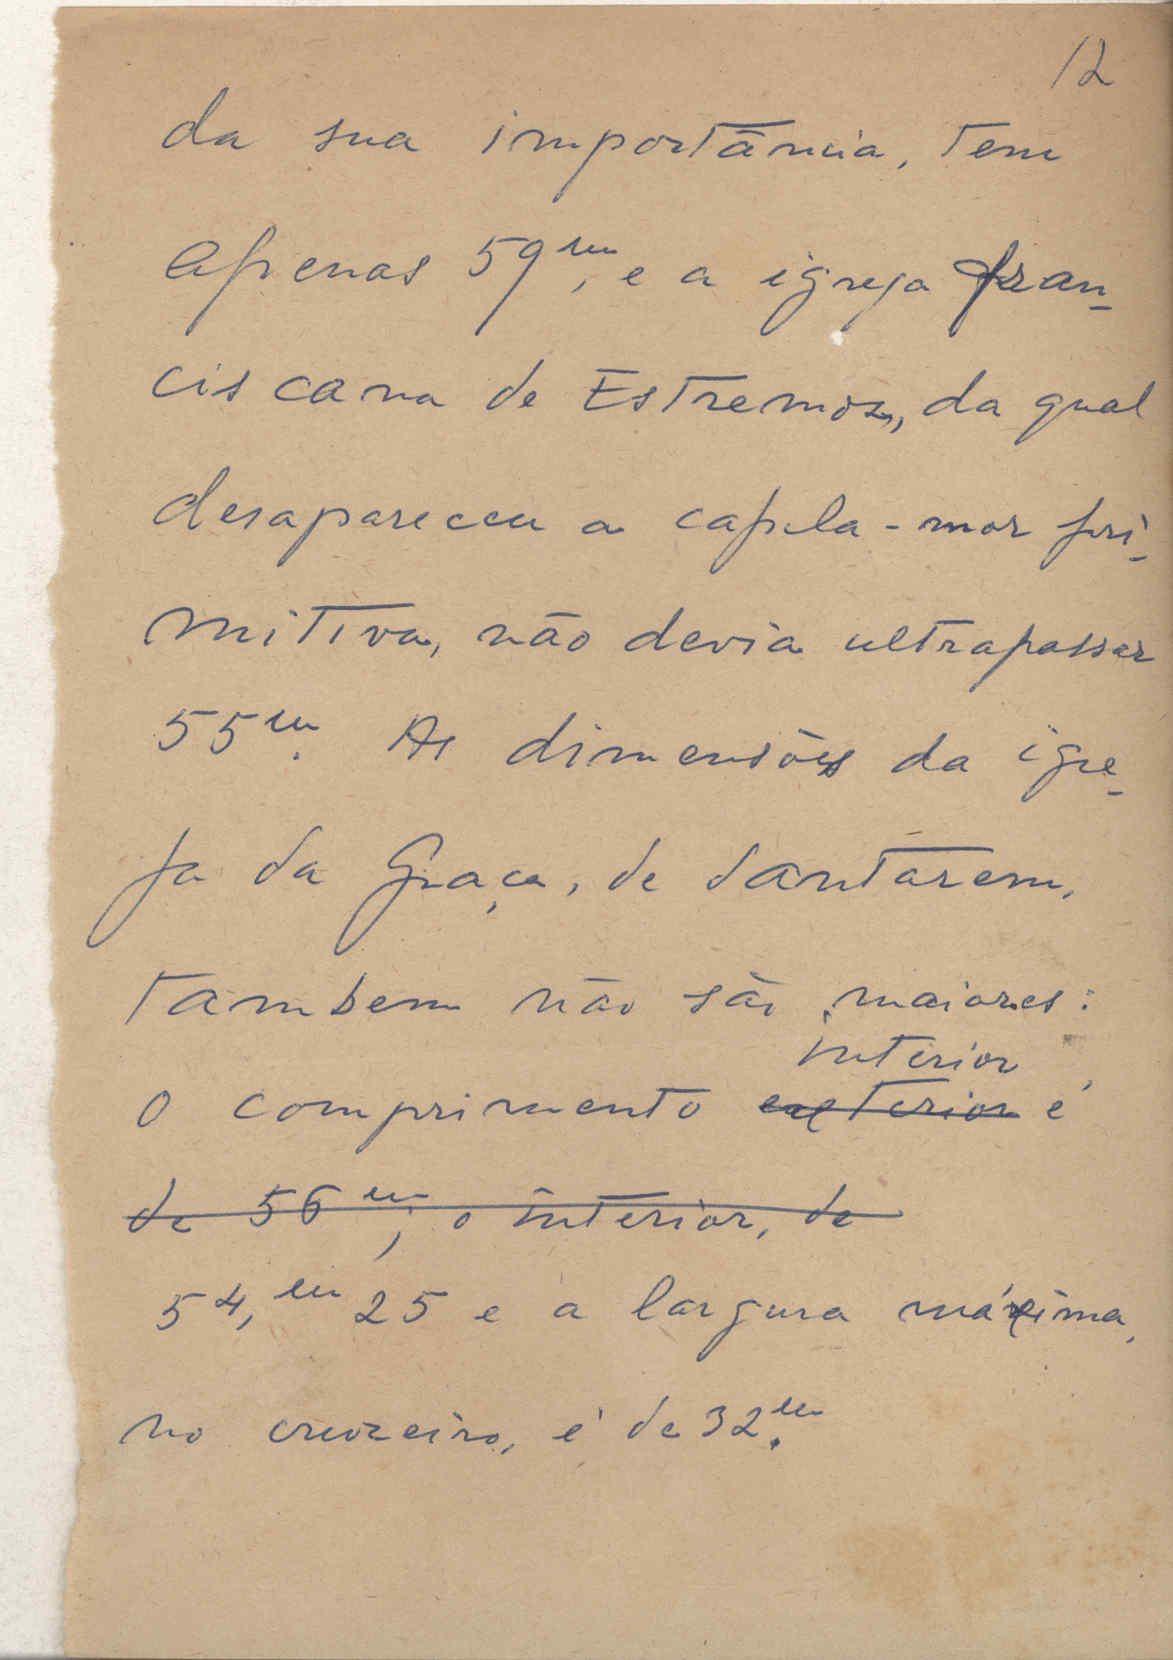 12
da sua importância, tem
apenas 59ᵐ, e a igreja fran-
ciscana de Estremoz, da qual
desapareceu a capela-mor pri-
mitiva, não devia ultrapassar
55ᵐ. As dimensões da igre-
ja da Graça, de Santarem,
tambem não são maiores:
interior
o comprimento exterior é
de 56ᵐ; o interior, de
54,ᵐ25 e a largura máxima,
no cruzeiro, é de 32ᵐ.